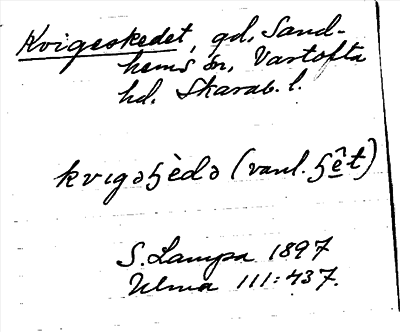 Kvigeskedet, gd, Sand-
hems sn, Vartofta
hd. Skarab. l.
kvıgəʒèdə (vanl. ʒêt)
S. Lampa 1897
Ulma 111:437.